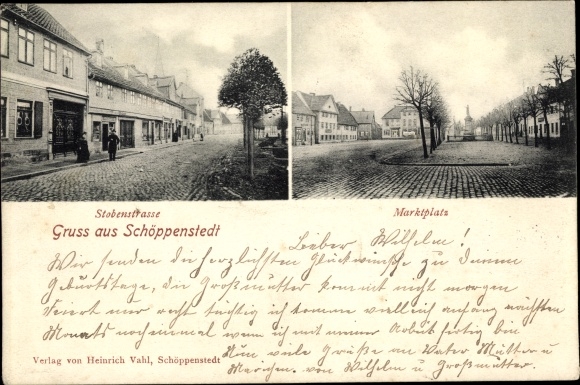 Stobenstrasse
Marktplatz
Gruss aus Schöppenstedt
Lieber Wilhelm!
Wir senden die herzlichsten Glückwünsche zu deinem
Geburtstage, die Großmutter kommt nicht morgen
Feiert nur recht tüchtig ich komme vielleich anfang nächsten
Monats nocheinmal wenn ich mit meiner Arbeit fertig bin
Nun viele Grüße an Vater Mutter u
von Wilhelm u Großmutter.
Verlag von Heinrich Vahl, Schöppenstedt